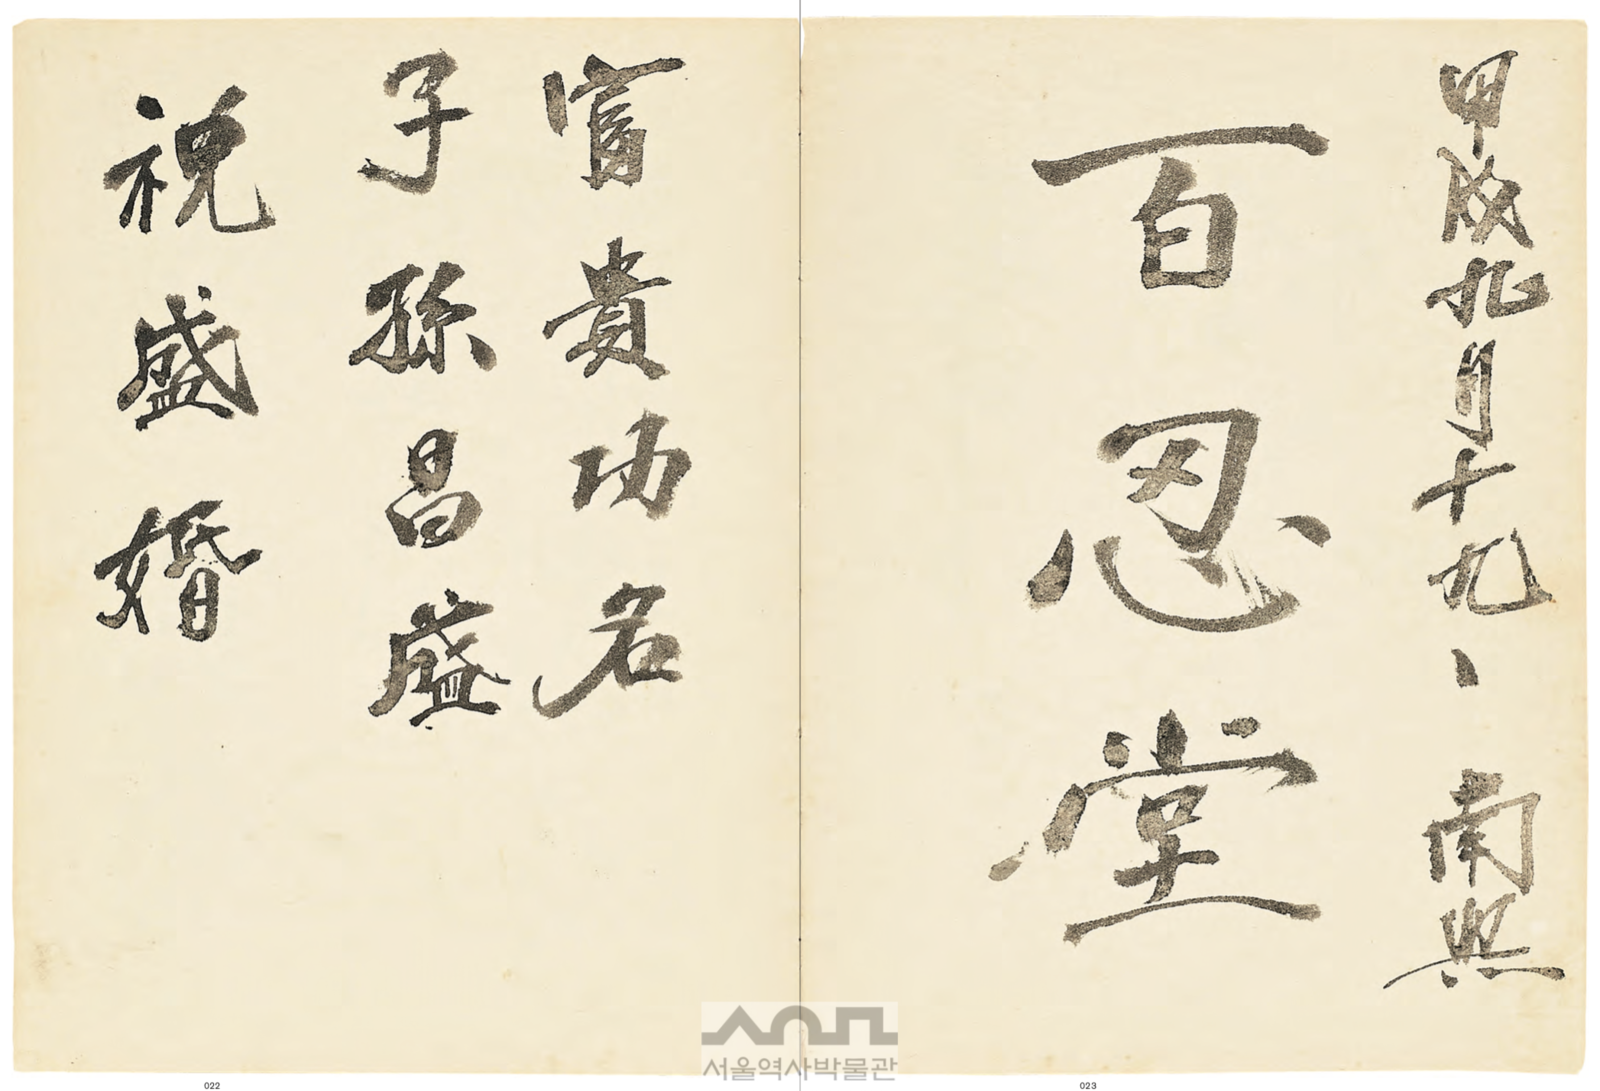 甲戌九月十九、南
百忍堂
富貴功名
子孫昌盛
祝盛婚
서울역사박물관
022
023